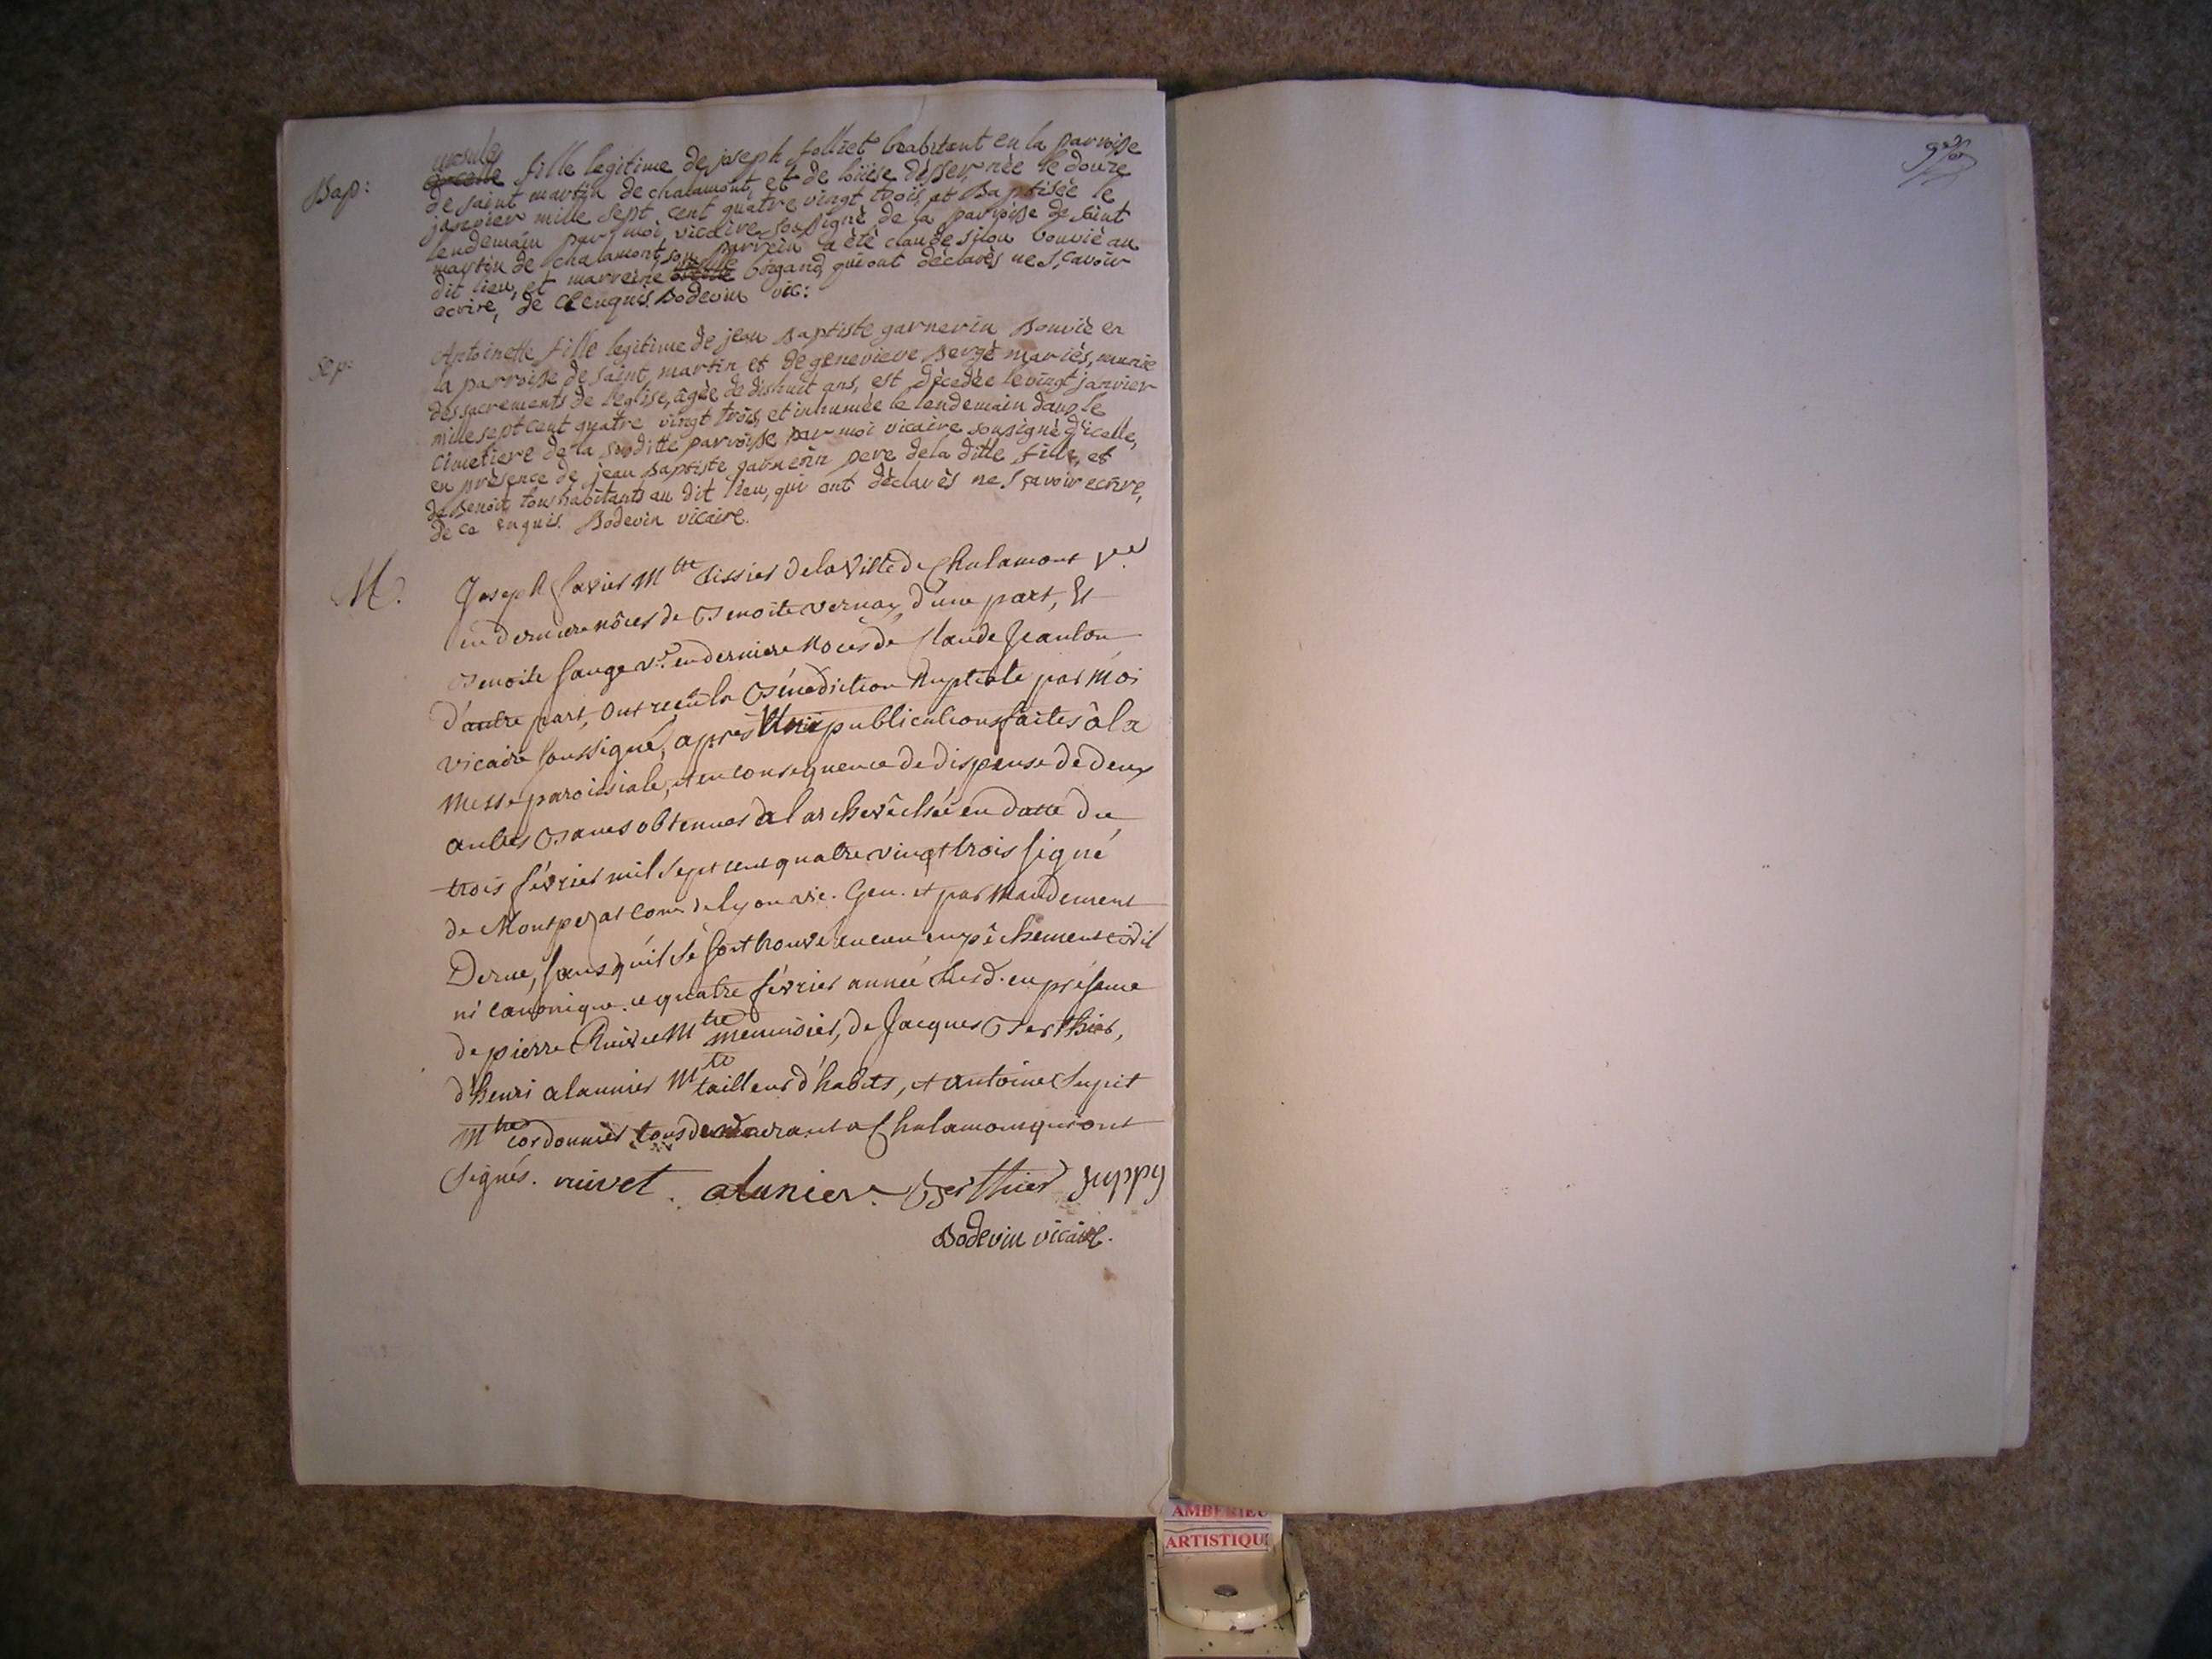 Bap:
ursule
fille legitime de joseph folliet habitant en la parroisse
de saint martin de chalamont, et de loüise désser, née le douze
janvier mille sept cent quatre vingt trois, et Baptisée le
lendemain par moi vicaire soussigné de la parroisse de saint
martin de chalamont, son parrein a été claude silou bouvié au
dit lieu, et marreine ursule brigand, qui ont déclarés ne sçavoir
ecrire, de ce enquis. Bodevin vic:
Sep:
Antoinette fille legitime de jean Baptiste garnerin Bouvié en
la parroisse de saint martin et de genevieve Bergé mariés, munie
des sacrements de l'eglise, âgée de dishuit ans, est décedée le vingt janvier
mille sept cent quatre vingt trois, et inhumée le lendemain dans le
cimetiere de la sus ditte parroisse par moi vicaire sousigné d'icelle,
en présence de jean Baptiste garnerin pere de la ditte fille, et
de Benoit tous habitants au dit lieu, qui ont déclarés ne sçavoir ecrire,
de ce enquis. Bodevin vicaire.
M.
Joseph favier Mtre tissier de la Ville de Chalamont
en derniere nôces de Benoite vernay d'une part, Et
Benoite sange ve. en derniere Noces de Claude Jeanton
d'autre part, Ont reçu la Bénédiction Nuptiale par Moi
vicaire soussigné, après Une publications faites à la
Messe paroissiale, et en consequence de dispense de deux
autres Bans obtenues à l'archevêchée en datte du
trois février mil sept cent quatre vingt trois signé
de Montpezat Com. de lyon vic. Gen. et par Mandement
Derue, sans qu'il se soit trouvé aucun empêchement civil
ni canonique. ce quatre février année susd. en présence
de pierre Ruivet Mtre menuisier, de Jacques Berthier,
d'henri alannier Mtre tailleur d'habits, et antoine supit
Mtre cordonnier tous demeurant a Chalamont qui ont
signés. ruivet. alanier. Berthier suppy
Bodevin vicaire.
AMBERIEU
ARTISTIQU